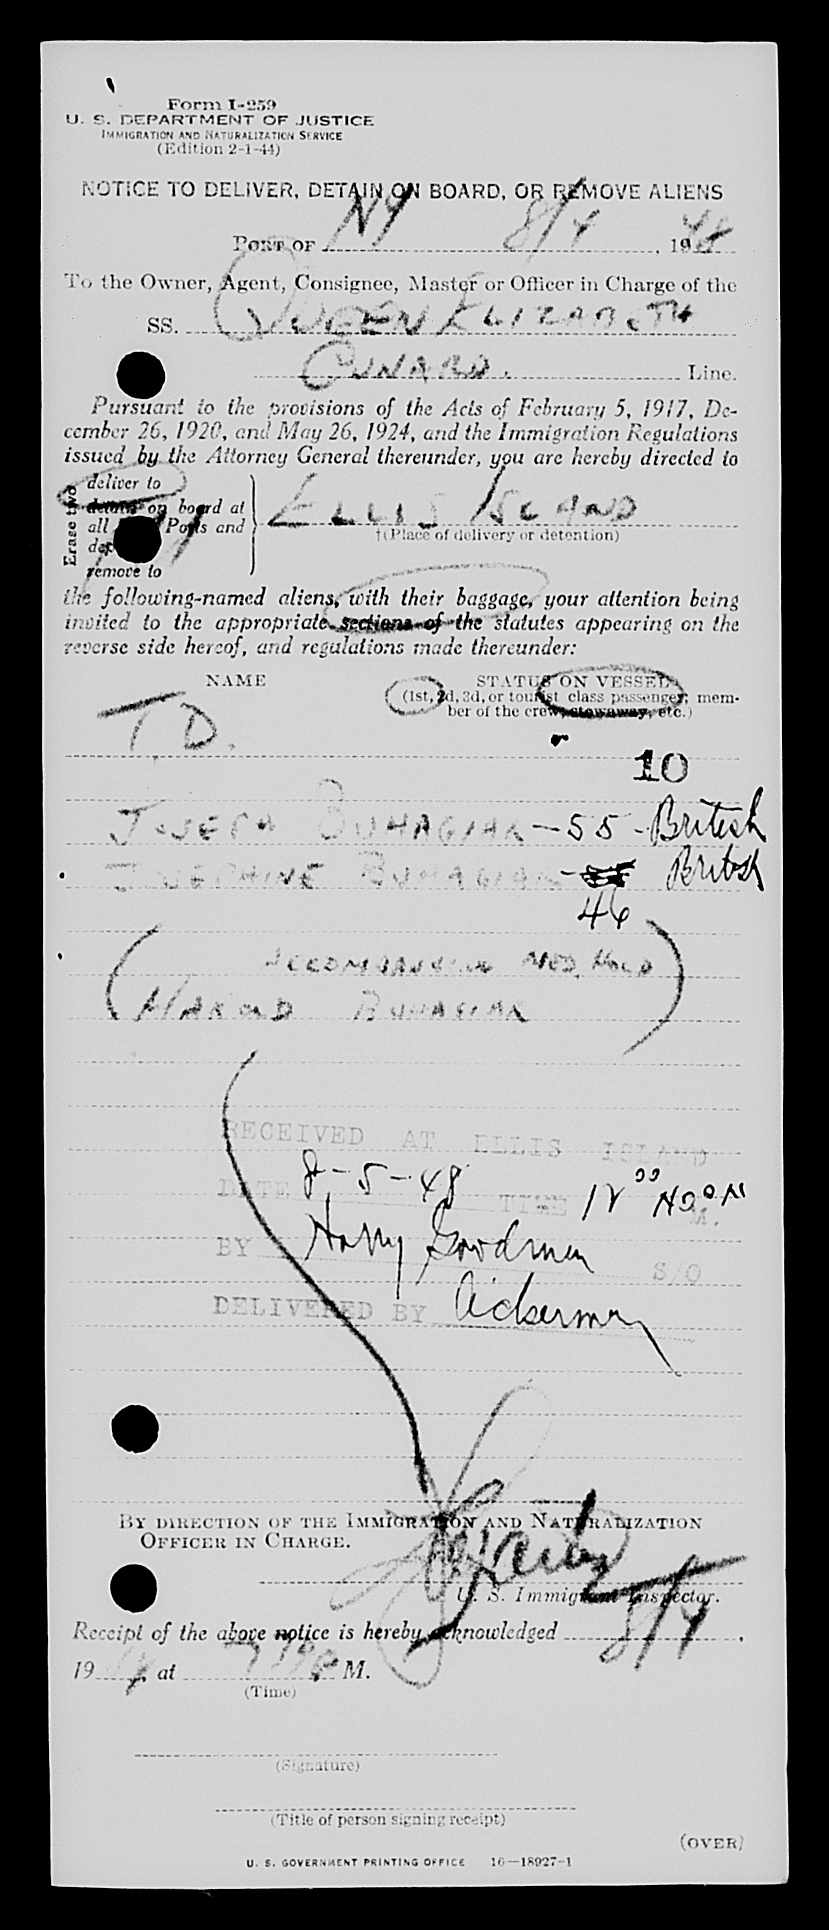 Form I-259
U. S. DEPARTMENT OF JUSTICE
IMMIGRATION AND NATURALIZATION SERVICE
(Edition 2-1-44)
NOTICE TO DELIVER, DETAIN ON BOARD, OR REMOVE ALIENS
PORT OF NY 8/4, 1948
To the Owner, Agent, Consignee, Master or Officer in Charge of the
SS. QUEEN ELIZABETH
CUNARD. Line.
Pursuant to the provisions of the Acts of February 5, 1917, De-
cember 26, 1920, and May 26, 1924, and the Immigration Regulations
issued by the Attorney General thereunder, you are hereby directed to
Erase two
deliver to
detain on board at
all Ports and
remove to
ELLIS ISLAND
†(Place of delivery or detention)
the following-named aliens, with their baggage, your attention being
invited to the appropriate sections of the statutes appearing on the
reverse side hereof, and regulations made thereunder:
NAME
STATUS ON VESSEL
(1st, 2d, 3d, or tourist class passenger; mem-
ber of the crew, stowaway, etc.)
T.D.
10
JOSEPH BUHAGIAR - 55 - British
JOSEPHINE BUHAGIAR - British
46
(ACCOMPANYING MED. HOLD
HAROLD BUHAGIAR)
RECEIVED AT ELLIS ISLAND
DATE 8-5-48 TIME 12 00 NOON M.
BY Harry Goodman S/O
DELIVERED BY Ackerman
BY DIRECTION OF THE IMMIGRATION AND NATURALIZATION
OFFICER IN CHARGE.
U. S. Immigrant Inspector.
Receipt of the above notice is hereby acknowledged 8/4,
1948, at P M.
(Time)
(Signature)
(Title of person signing receipt)
(OVER)
U. S. GOVERNMENT PRINTING OFFICE 16—18927-1